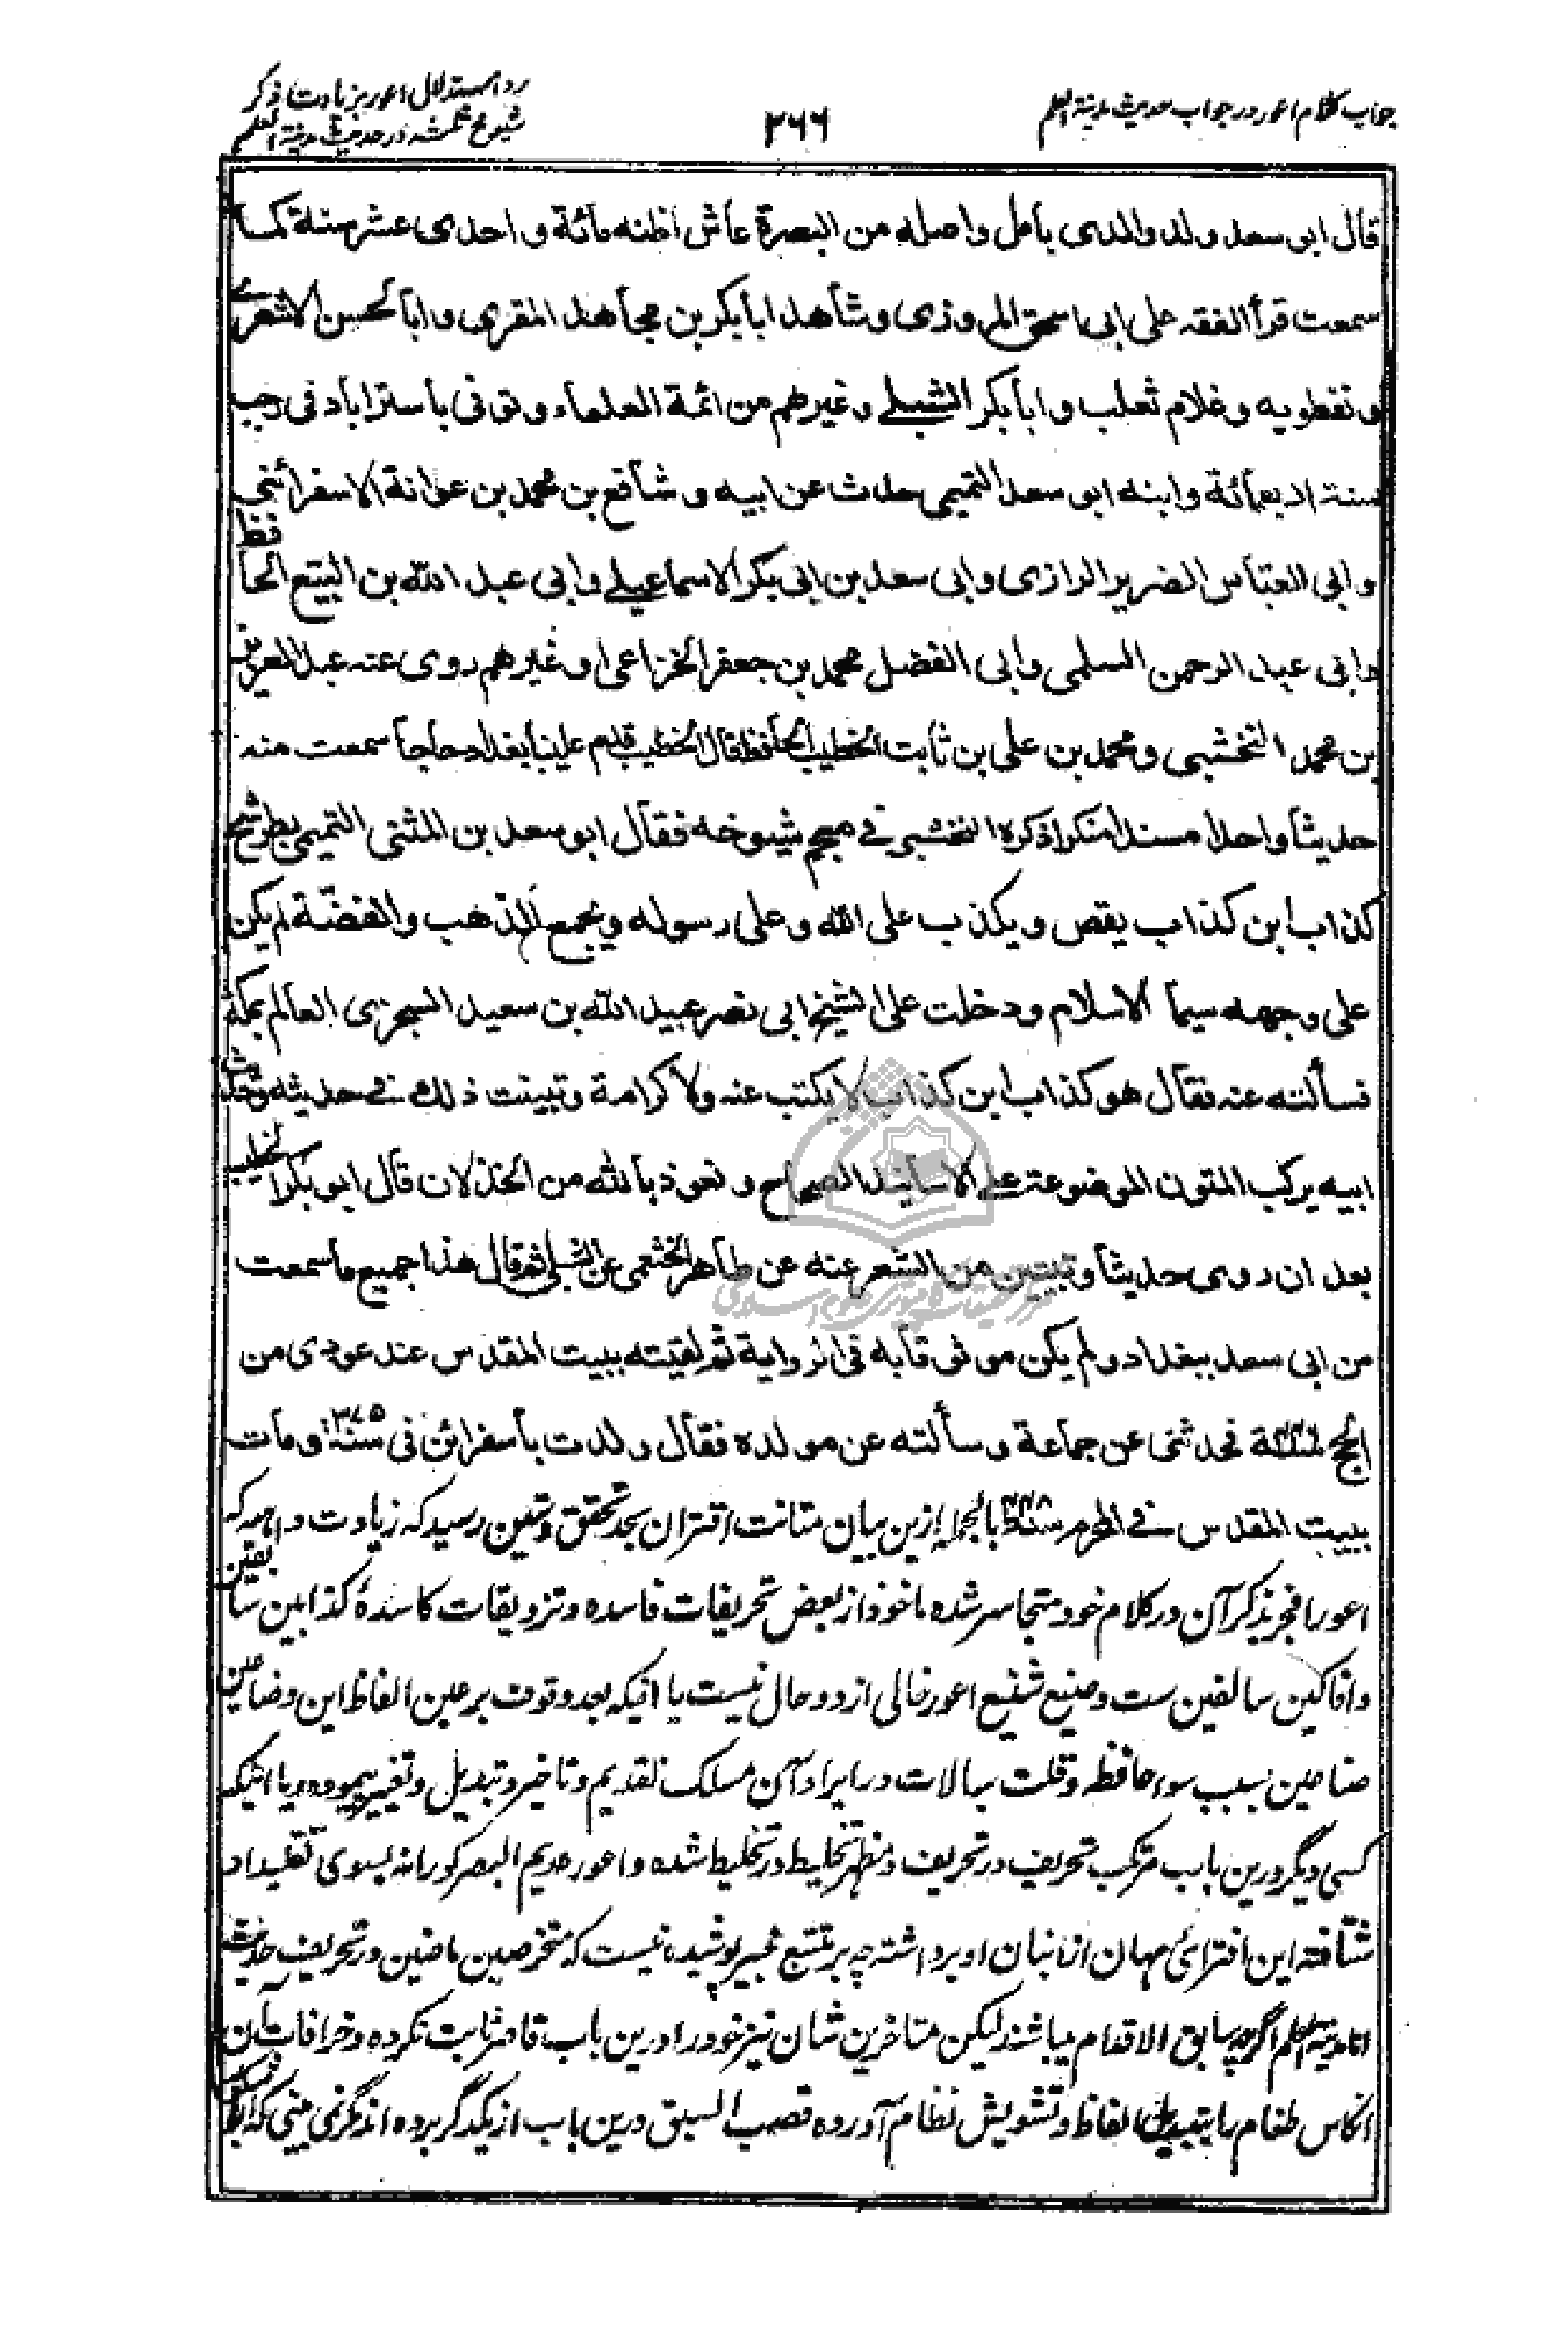 جواب کلام اعور در جواب حدیث مدینة العلم
۲۶۶
رد استدلال اعور بزیادت ذکر
شیوخ ثلثه در حدیث مدینة العلم
قال ابو سعد ولد والدی بآمل واصله من البصرة عاش اظنه مائة واحدی عشر سنة کما
سمعت قرأ الفقه علی ابی اسحق المروزی وشاهد ابابکر بن مجاهد المقری وابا الحسن الاشعری
ونفطویه وغلام ثعلب وابابکر الشبلے وغیرهم من ائمة العلماء وتوفی باستراباد فی رجب
سنة اربعمائة وابنه ابو سعد التمیمی حدث عن ابیه وشافع بن محمد بن عوانة الاسفرائنی
وابی العباس الضریر الرازی وابی سعد بن ابی بکر الاسماعیلے وابی عبد الله بن البیع الحافظ
وابی عبد الرحمن السلمی وابی الفضل محمد بن جعفر الخزاعی وغیرهم روی عنه عبد العزیز
بن محمد النخشبی ومحمد بن علی بن ثابت الخطیب الحافظ قال الخطیب قدم علینا بغداد حاجا سمعت منه
حدیثا واحدا مسندا منکرا ذکره النخشبی فے معجم شیوخه فقال ابو سعد بن المثنی التمیمی
کذاب ابن کذاب یقص ویکذب علی الله وعلی رسوله ویجمع الذهب والفضة لم یکن
علی وجهه سیما الاسلام ودخلت علی الشیخ ابی نصر عبید الله بن سعید السجزی العالم بمکة
فسألته عنه فقال هو کذاب ابن کذاب لا یکتب عنه ولا کرامة وتبینت ذلک فے حدیثه وحدیث
ابیه یرکب المتون الموضوعة علے الاسانید الصحاح ونعوذ بالله من الخذلان قال ابو بکر الخطیب
بعد ان روی حدیثا وبیتین من الشعر عنه عن طاهر الخثعمی عن الشبلی ثم قال هذا جمیع ما سمعت
من ابی سعد ببغداد ولم یکن موثوقا به فی الروایة ثم لقیته ببیت المقدس عند عودی من
الحج فحدثنی عن جماعة وسألته عن مولده فقال ولدت باسفرائن فی سنة ۳۷۵ ومات
ببیت المقدس فے المحرم بالجمله ازین بیان متانت اقتران بحد تحقق وتبین رسید که زیادت که
اعور افجر بذکر آن در کلام خود متجاسر شده ماخوذ از بعض تحریفات فاسده وتزویقات کاسدهٔ کذابین سابقین
وافاکین سالفین ست وصنیع شنیع اعور خالی از دو حال نیست یا اینکه بعد وقوف بر عین الفاظ این وضاعین
بسبب سوء حافظه وقلت مبالات در ایراد آن مسلک تقدیم وتاخیر وتبدیل وتغییر پیموده ویا اینکه
کسی دیگر درین باب مرتکب تحریف در تحریف ومظهر تخلیط در تخلیط شده واعور عدیم البصر کورانه بسوی تقلید او
شتافته این افترای مهان از انبان او برداشته چه بر متتبع خبیر پوشیده نیست که متخرصین ماضین در تحریف حدیث
انا مدینة العلم اگرچه سابق الاقدام میباشند لیکن متاخرین شان نیز خود را درین باب قاصر ثابت نکرده وخرافات آن
طغام را بتبدیل الفاظ وتشویش نظام آورده قصب السبق درین باب از یکدگر برده اند مگر نمی بینی که